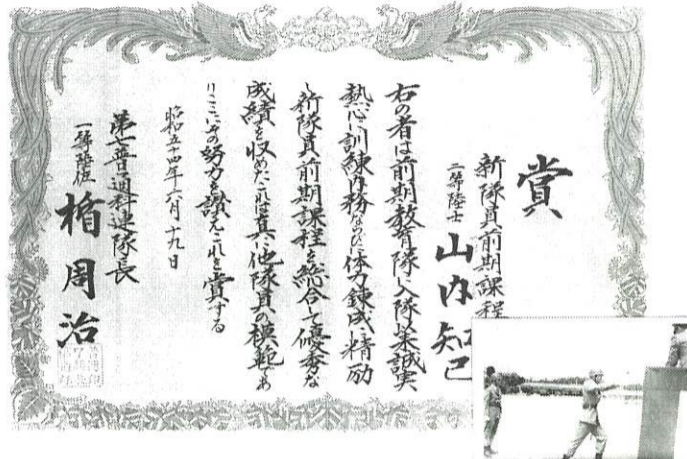 賞
新隊員前期課程
二等陸士 山内知己
右の者は前期教育隊に入隊以来誠実
熱心に訓練内務ならびに体力錬成に精励
し新隊員前期課程を総合して優秀な
成績を収めたこれは真に他隊員の模範であ
りここにその努力を讃えこれを賞する
昭和五十四年六月十九日
第七普通科連隊長
一等陸佐 楯周治